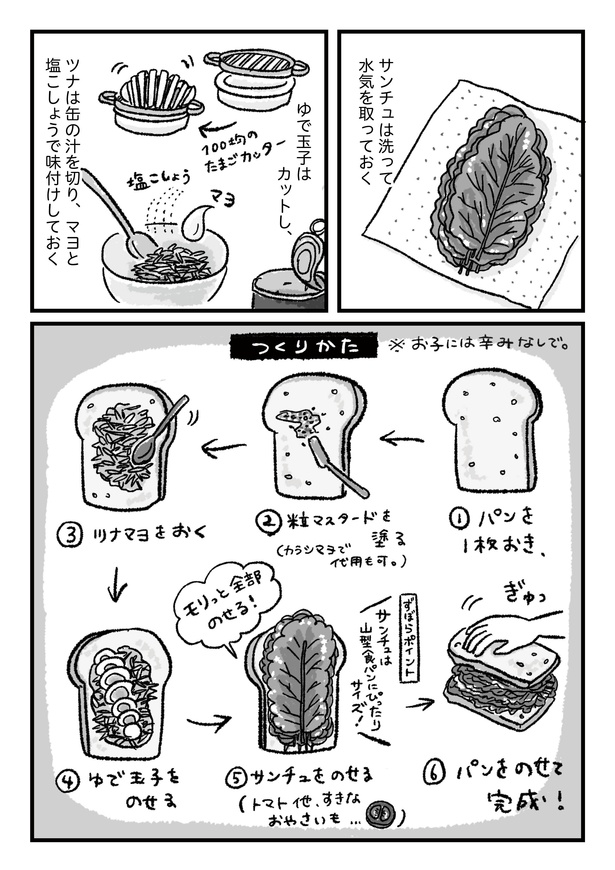 サンチュは洗って
水気を取っておく
ゆで玉子は
カットし、
100均の
たまごカッター
ツナは缶の汁を切り、マヨと
塩こしょうで味付けしておく
塩こしょう
マヨ
つくりかた
※お子には辛みなしで。
①パンを
1枚おき、
②粒マスタードを
塗る
(カラシマヨで
代用も可。)
③ツナマヨをおく
④ゆで玉子を
のせる
モリっと全部
のせる!
⑤サンチュをのせる
(トマト他、すきな
おやさいも…
)
ずぼらポイント
サンチュは
山型食パンにぴったり
サイズ!
ぎゅっ
⑥パンをのせて
完成!